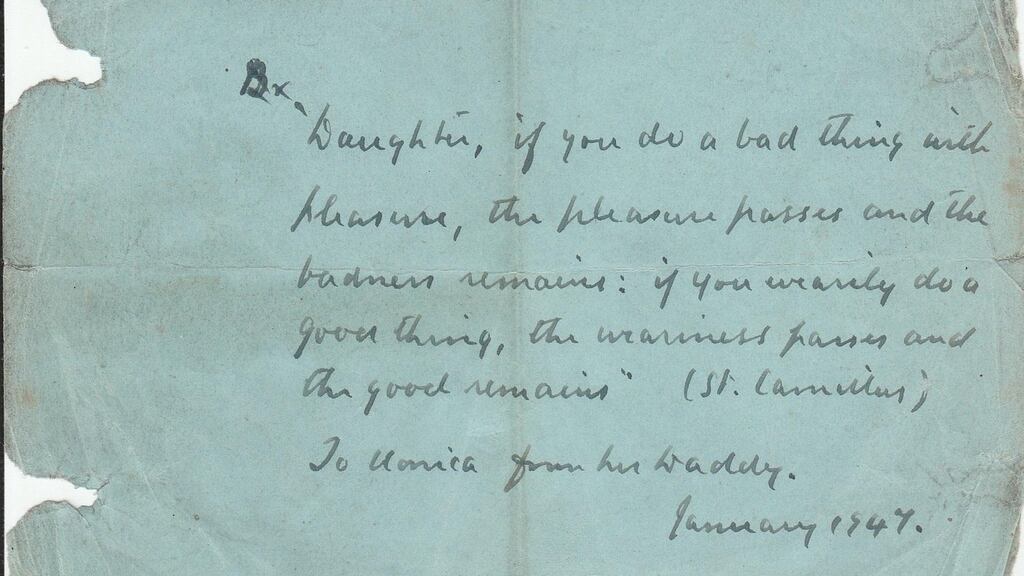 Bx.
"Daughter, if you do a bad thing with
pleasure, the pleasure passes and the
badness remains: if you wearily do a
good thing, the weariness passes and
the good remains" (St. Camillus)
To Monica from her Daddy.
January 1947.